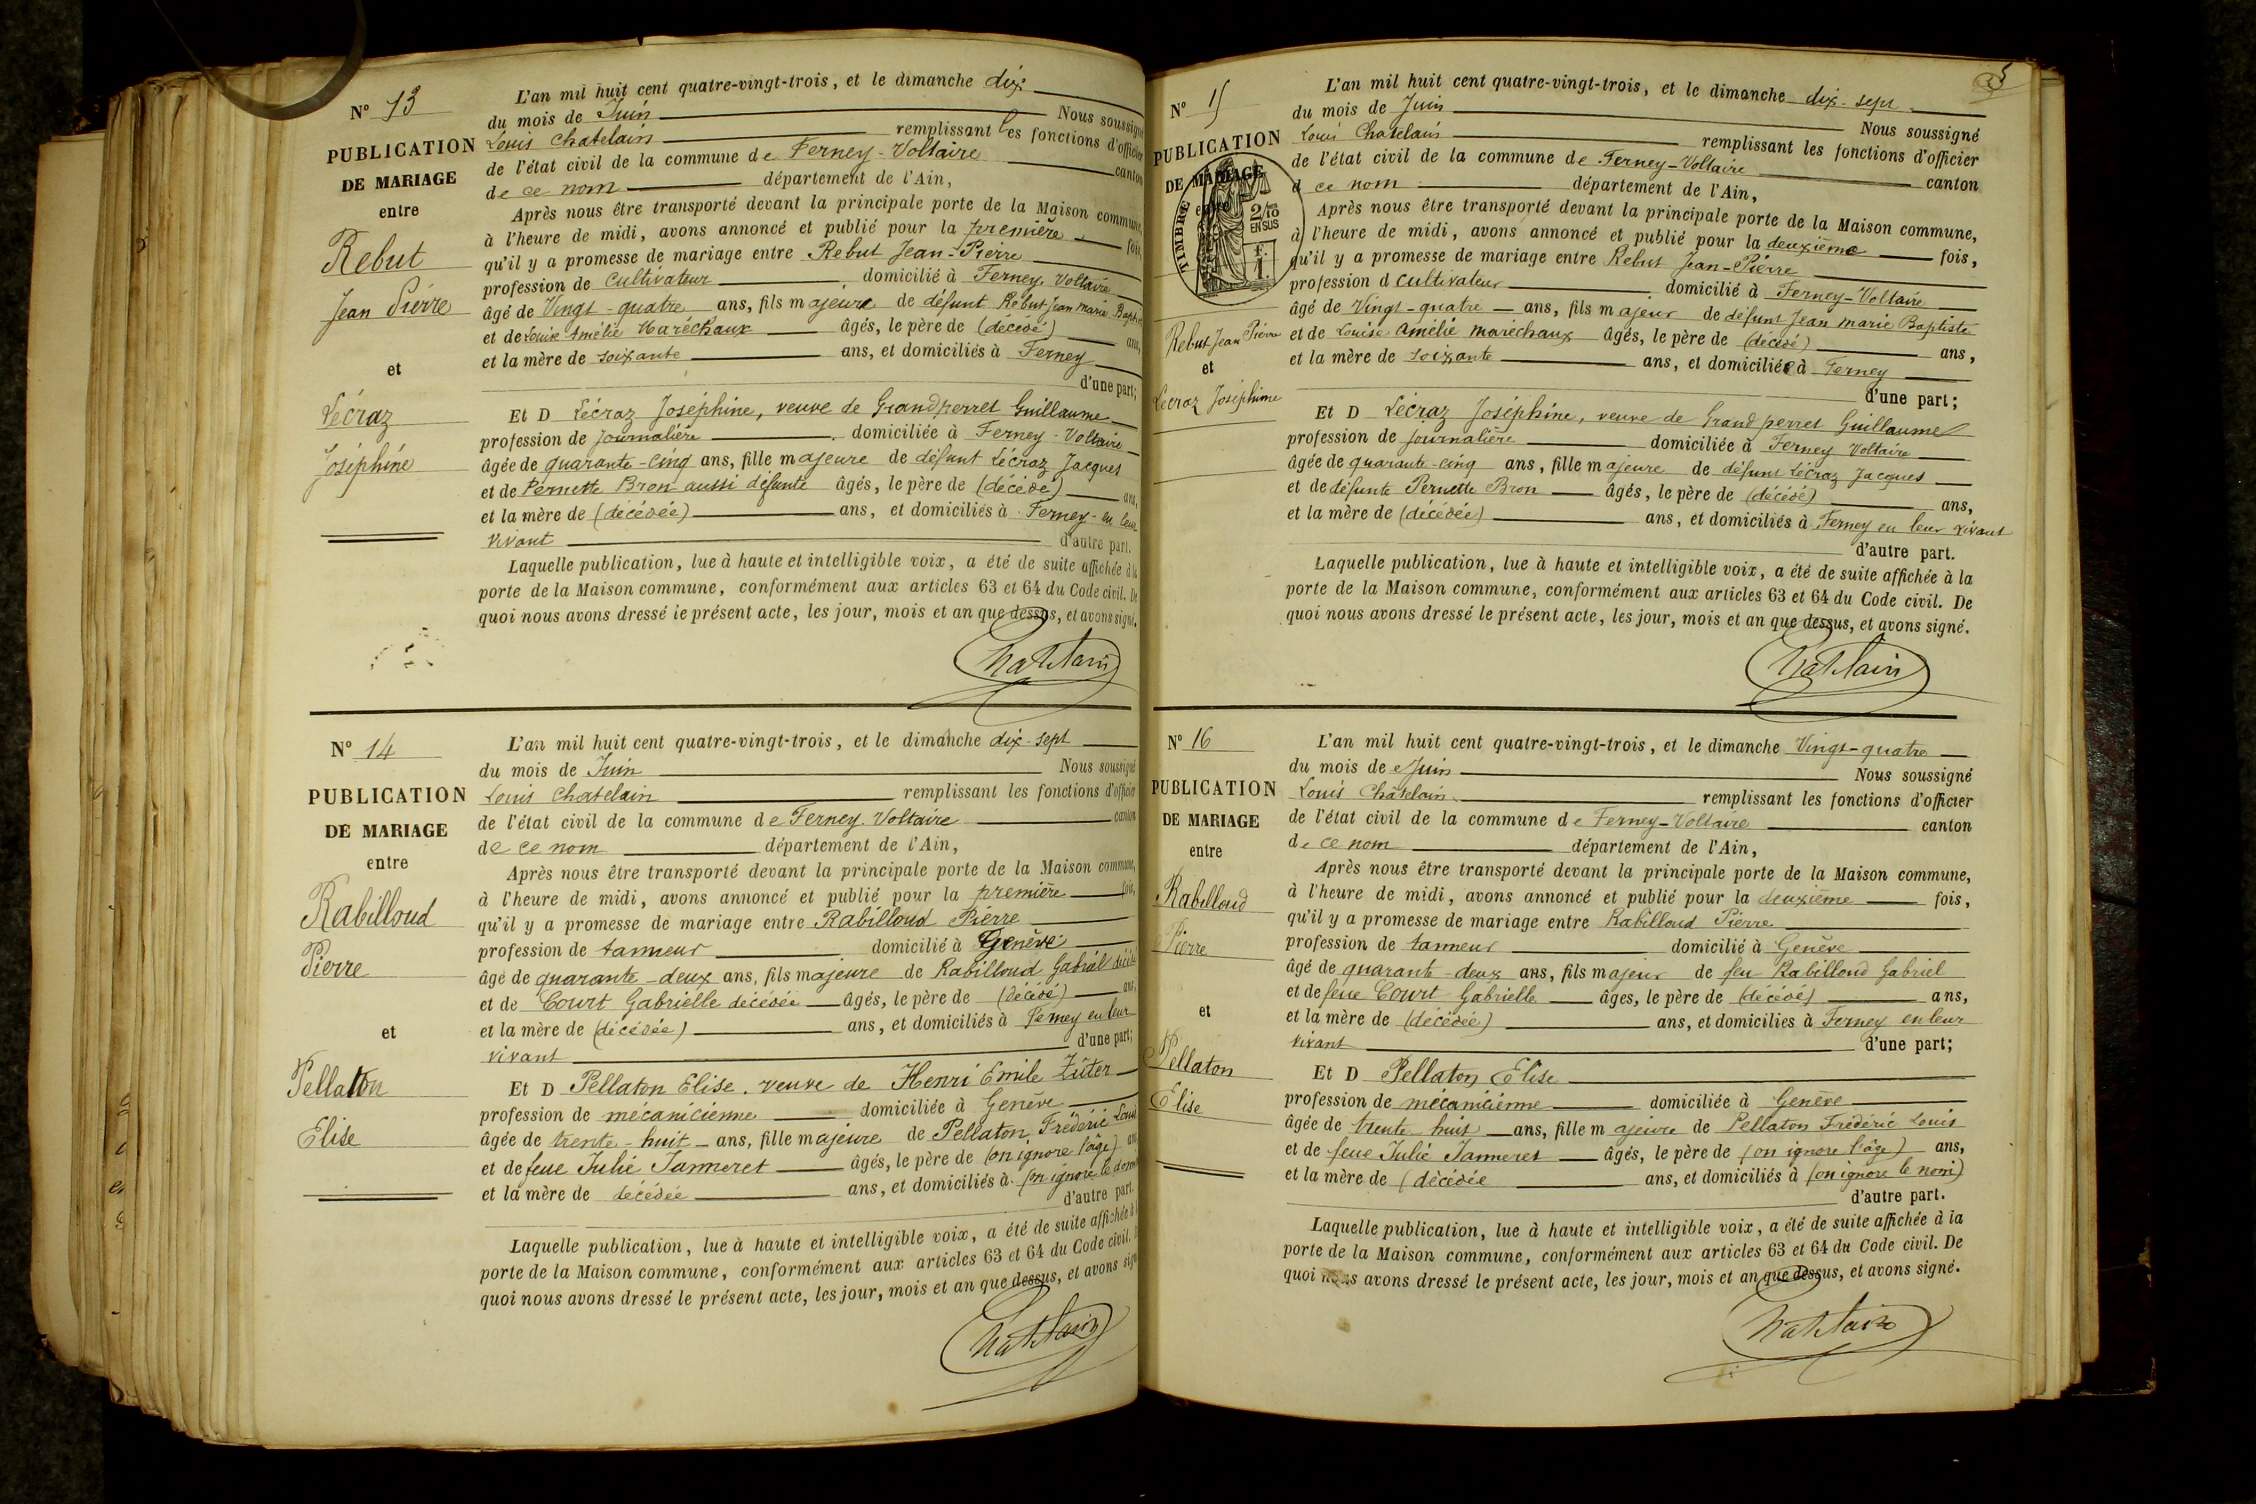 N° 13
PUBLICATION
DE MARIAGE
entre
Rebut
Jean Pierre
et
Lécraz
Joséphine
L'an mil huit cent quatre-vingt-trois, et le dimanche dix
du mois de Juin Nous soussigné
Louis Chatelain remplissant les fonctions d'officier
de l'état civil de la commune de Ferney-Voltaire canton
de ce nom département de l'Ain,
Après nous être transporté devant la principale porte de la Maison commune,
à l'heure de midi, avons annoncé et publié pour la première fois,
qu'il y a promesse de mariage entre Rebut Jean-Pierre
profession de cultivateur domicilié à Ferney-Voltaire
âgé de Vingt-quatre ans, fils majeure de défunt Rebut Jean marie Baptiste
et de Louise Amélie Maréchaux âgés, le père de (décédé) ans,
et la mère de soixante ans, et domiciliés à Ferney
d'une part;
Et D Lécraz Joséphine, veuve de Grandperret Guillaume
profession de journalière domiciliée à Ferney-Voltaire
âgée de quarante-cinq ans, fille majeure de défunt Lécraz Jacques
et de Pernette Bron aussi défunte âgés, le père de (décédé) ans,
et la mère de (décédée) ans, et domiciliés à Ferney-en leur
vivant d'autre part.
Laquelle publication, lue à haute et intelligible voix, a été de suite affichée à la
porte de la Maison commune, conformément aux articles 63 et 64 du Code civil. De
quoi nous avons dressé le présent acte, les jour, mois et an que dessus, et avons signé.
Chatelain
N° 14
PUBLICATION
DE MARIAGE
entre
Rabilloud
Pierre
et
Pellaton
Elise
L'an mil huit cent quatre-vingt-trois, et le dimanche dix-sept
du mois de Juin Nous soussigné
Louis Chatelain remplissant les fonctions d'officier
de l'état civil de la commune de Ferney-Voltaire canton
de ce nom département de l'Ain,
Après nous être transporté devant la principale porte de la Maison commune,
à l'heure de midi, avons annoncé et publié pour la première fois,
qu'il y a promesse de mariage entre Rabilloud Pierre
profession de tanneur domicilié à Genève
âgé de quarante-deux ans, fils majeure de Rabilloud Gabriel décédé
et de Court Gabrielle décédée âgés, le père de (décédé) ans,
et la mère de (décédée) ans, et domiciliés à Ferney en leur
vivant d'une part;
Et D Pellaton Elise. veuve de Henri Emile Zûter
profession de mécanicienne domiciliée à Genève
âgée de trente-huit ans, fille majeure de Pellaton, Frédéric Louis
et de feue Julie Janneret âgés, le père de (on ignore l'âge) ans
et la mère de décédée ans, et domiciliés à (on ignore le
d'autre part.
Laquelle publication, lue à haute et intelligible voix, a été de suite affichée à la
porte de la Maison commune, conformément aux articles 63 et 64 du Code civil. De
quoi nous avons dressé le présent acte, les jour, mois et an que dessus, et avons signé
Chatelain
5
N° 15
PUBLICATION
DE MARIAGE
entre
TIMBRE
2/10
EN SUS
1 F.
Rebut Jean Pierre
et
Lécraz Joséphine
L'an mil huit cent quatre-vingt-trois, et le dimanche dix-sept
du mois de Juin Nous soussigné
Louis Chatelain remplissant les fonctions d'officier
de l'état civil de la commune de Ferney-Voltaire canton
d ce nom département de l'Ain,
Après nous être transporté devant la principale porte de la Maison commune,
à l'heure de midi, avons annoncé et publié pour la deuxième fois,
qu'il y a promesse de mariage entre Rebut Jean-Pierre
profession d cultivateur domicilié à Ferney-Voltaire
âgé de Vingt-quatre ans, fils majeur de défunt Jean marie Baptiste
et de Louise Amélie maréchaux âgés, le père de (décédé) ans,
et la mère de soixante ans, et domiciliée à Ferney
d'une part;
Et D Lécraz Joséphine, veuve de Grandperret Guillaume
profession de journalière domiciliée à Ferney Voltaire
âgée de quarante-cinq ans, fille majeure de défunt Lécraz Jacques
et de défunte Pernette Bron âgés, le père de (décédé) ans,
et la mère de (décédée) ans, et domiciliés à Ferney en leur vivant
d'autre part.
Laquelle publication, lue à haute et intelligible voix, a été de suite affichée à la
porte de la Maison commune, conformément aux articles 63 et 64 du Code civil. De
quoi nous avons dressé le présent acte, les jour, mois et an que dessus, et avons signé.
Chatelain
N° 16
PUBLICATION
DE MARIAGE
entre
Rabilloud
Pierre
et
Pellaton
Elise
L'an mil huit cent quatre-vingt-trois, et le dimanche Vingt-quatre
du mois de Juin Nous soussigné
Louis Chatelain remplissant les fonctions d'officier
de l'état civil de la commune de Ferney-Voltaire canton
de ce nom département de l'Ain,
Après nous être transporté devant la principale porte de la Maison commune,
à l'heure de midi, avons annoncé et publié pour la deuxième fois,
qu'il y a promesse de mariage entre Rabilloud Pierre
profession de tanneur domicilié à Genève
âgé de quarante-deux ans, fils majeur de feu Rabilloud Gabriel
et de feue Court Gabrielle âges, le père de (décédé) ans,
et la mère de (décédée) ans, et domiciliés à Ferney en leur
vivant d'une part;
Et D Pellaton Elise
profession de mécanicienne domiciliée à Genève
âgée de trente huit ans, fille majeure de Pellaton Frédéric Louis
et de feue Julie Janneret âgés, le père de (on ignore l'âge) ans,
et la mère de (décédée ans, et domiciliés à (on ignore le nom)
d'autre part.
Laquelle publication, lue à haute et intelligible voix, a été de suite affichée à la
porte de la Maison commune, conformément aux articles 63 et 64 du Code civil. De
quoi nous avons dressé le présent acte, les jour, mois et an que dessus, et avons signé.
Chatelain